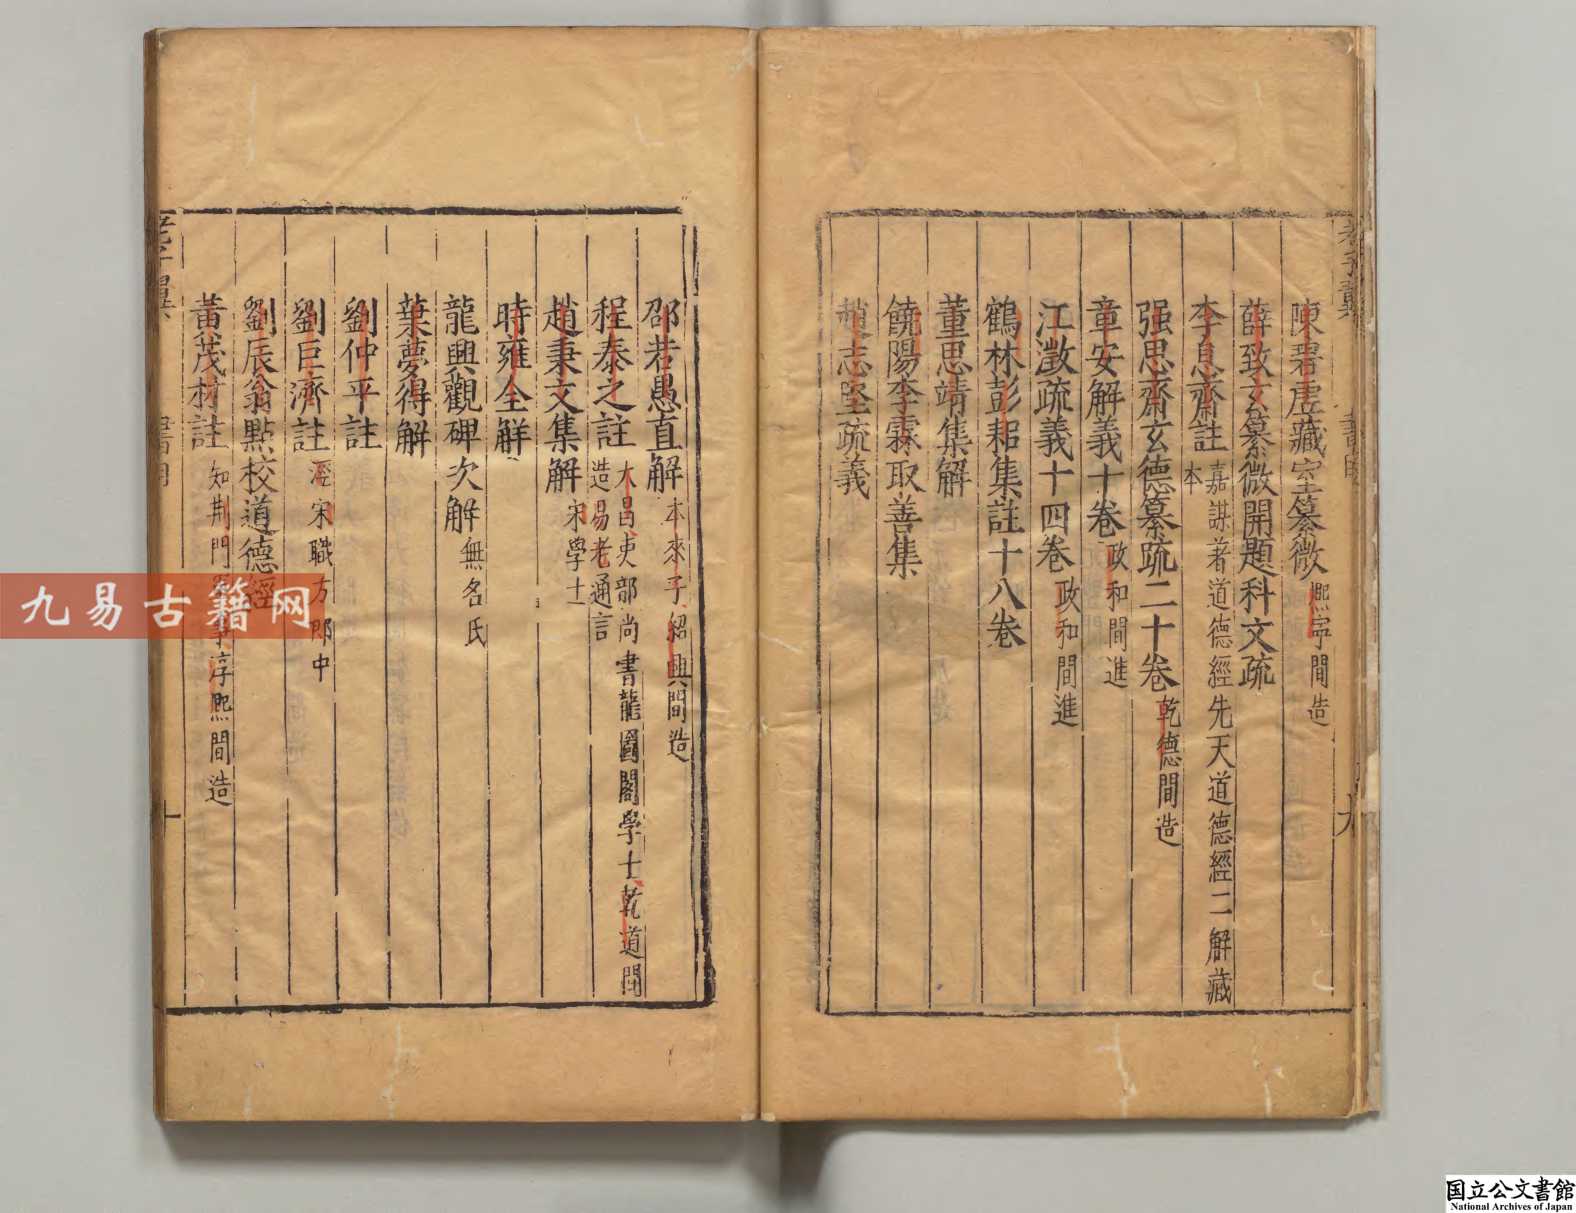 陳碧虛藏室纂微 熙寧間造
薛致玄纂微開題科文疏
李息齋註 嘉謀著道德經先天道德經二解藏本
强思齋玄德纂疏二十卷 乾德間造
章安解義十卷 政和間進
江澂疏義十四卷 政和間進
鶴林彭耜集註十八卷
董思靖集解
饒陽李霖取善集
趙志堅疏義
邵若愚直解 本來子紹興間造
程泰之註 大昌吏部尚書龍圖閣學士乾道間造易老通言
趙秉文集解 宋學士
時雍全解
龍興觀碑次解 無名氏
葉夢得解
劉仲平註
劉巨濟註 涇宋職方郎中
劉辰翁點校道德經
黃茂材註 知荆門軍事淳熙間造
老子翼
十
九易古籍网
国立公文書館
National Archives of Japan